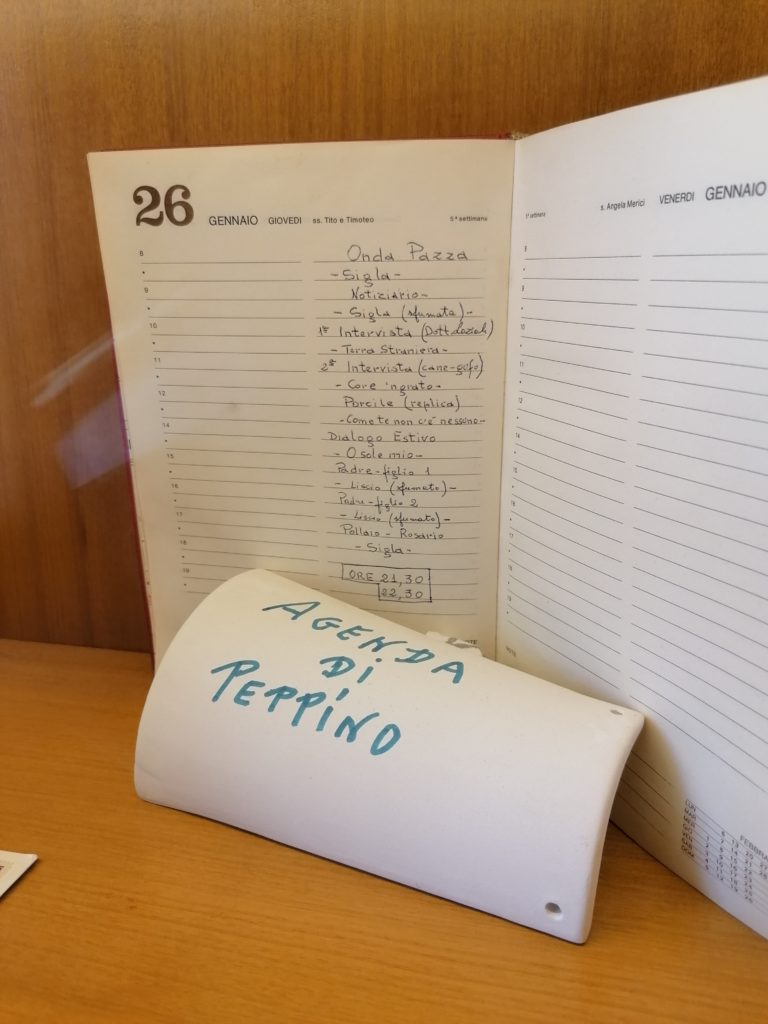 26 GENNAIO GIOVEDI ss. Tito e Timoteo 5ª settimana
8
9
10
11
12
13
14
15
16
17
18
19
Onda Pazza
- Sigla -
Notiziario -
- Sigla (sfumata) -
1ª Intervista (Dott.
- Terra Straniera -
2ª Intervista (cane-
- Core 'ngrato -
Porcile (replica)
- Come te non c'è nessuno -
Dialogo Estivo
- O sole mio -
Padre-figlio 1
- Liscio (sfumato) -
Padre-figlio 2
- Liscio (sfumato) -
Pollaio - Rosario
- Sigla -
ORE 21,30
22,30
s. Angela Merici VENERDI GENNAIO
8
9
10
11
12
13
14
15
16
17
18
19
NOTE
LUN
MAR
MER
GIO
VEN
SAB
DOM
FEBBRA
AGENDA
Di
PEPPINO